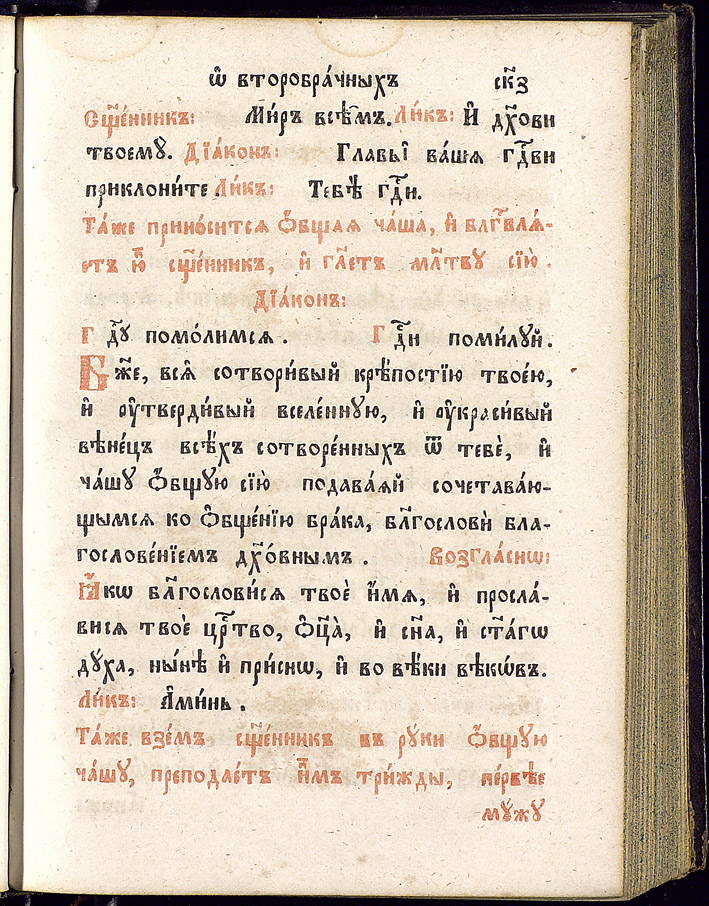 Ѡ҆ второбра́чныхъ ск҃з
Сщ҃е́нникъ: Ми́ръ всѣ̑мъ. Ли́къ: И҆ дх҃ови
твоемꙋ̀. Дїа́конъ: Главы̀ ва́шѧ гдⷭ҇ви
приклони́те. Ли́къ: Тебѣ̀ гдⷭ҇и.
Та́же прино́ситсѧ ѻ҆́бщаѧ ча́ша, и҆ блгⷭ҇влѧ́-
етъ ю҆̀ сщ҃е́нникъ, и҆ гл҃етъ мл҃твꙋ сїю̀.
Дїа́конъ:
Гдⷭ҇ꙋ помо́лимсѧ. Гдⷭ҇и поми́лꙋй.
Бж҃е, всѧ̑ сотвори́вый крѣ́постїю твое́ю,
и҆ ᲂу҆тверди́вый вселе́ннꙋю, и҆ ᲂу҆краси́вый
вѣне́цъ всѣ́хъ сотворе́нныхъ ѿ тебѐ, и҆
ча́шꙋ ѻ҆́бщꙋю сїю̀ подава́ѧй сочетава́ю-
щымсѧ ко ѻ҆бще́нїю бра́ка, бл҃гословѝ бла-
гослове́нїемъ дх҃о́внымъ. Возгла́снѡ:
Ꙗ҆́кѡ бл҃гослови́сѧ твоѐ и҆́мѧ, и҆ просла́-
висѧ твоѐ црⷭ҇тво, ѻ҆ц҃а̀, и҆ сн҃а, и҆ ст҃а́гѡ
дꙋ́ха, ны́нѣ и҆ при́снѡ, и҆ во вѣ́ки вѣкѡ́въ.
Ли́къ: А҆ми́нь.
Та́же взе́мъ сщ҃е́нникъ въ рꙋ́ки ѻ҆́бщꙋю
ча́шꙋ, преподае́тъ и҆̀мъ три́жды, пе́рвѣе
мꙋ́жꙋ